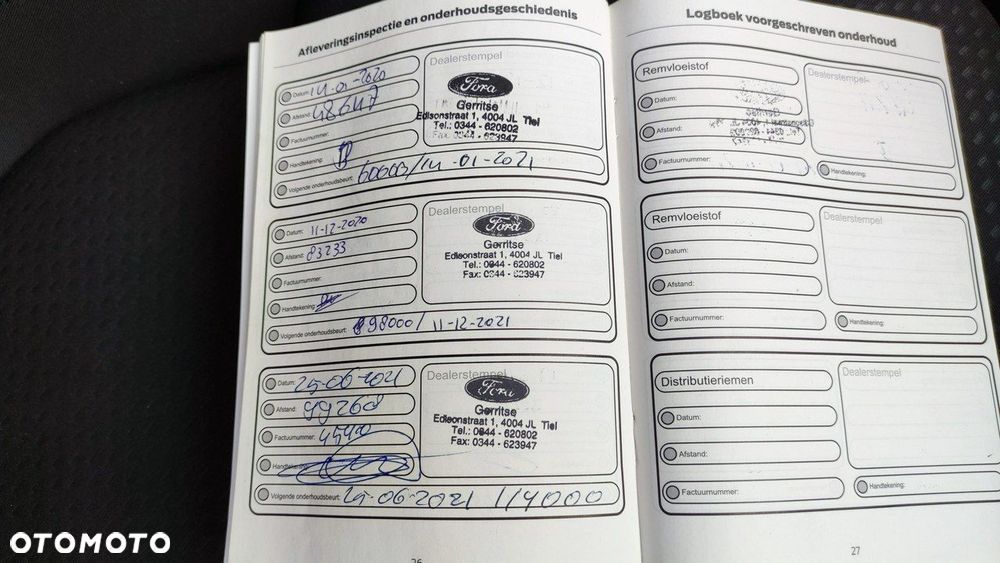 Afleveringsinspectie en onderhoudsgeschiedenis
Datum: 14-01-2020
Afstand: 48647
Factuurnummer:
Handtekening:
Volgende onderhoudsbeurt: 60000/14-01-2021
Dealerstempel
Ford
Gerritse
Edisonstraat 1, 4004 JL Tiel
Tel.: 0344 - 620802
Fax: 0344 - 623947
Datum: 11-12-2020
Afstand: 83233
Factuurnummer:
Handtekening:
Volgende onderhoudsbeurt: 98000/ 11-12-2021
Dealerstempel
Ford
Gerritse
Edisonstraat 1, 4004 JL Tiel
Tel.: 0344 - 620802
Fax: 0344 - 623947
Datum: 29-06-2021
Afstand: 99268
Factuurnummer:
Handtekening:
Volgende onderhoudsbeurt: 29-06-2021 114000
Dealerstempel
Ford
Gerritse
Edisonstraat 1, 4004 JL Tiel
Tel.: 0344 - 620802
Fax: 0344 - 623947
26
Logboek voorgeschreven onderhoud
Remvloeistof
Datum:
Afstand:
Factuurnummer:
Dealerstempel
Handtekening:
Remvloeistof
Datum:
Afstand:
Factuurnummer:
Dealerstempel
Handtekening:
Distributieriemen
Datum:
Afstand:
Factuurnummer:
Dealerstempel
Handtekening:
27
OTOMOTO